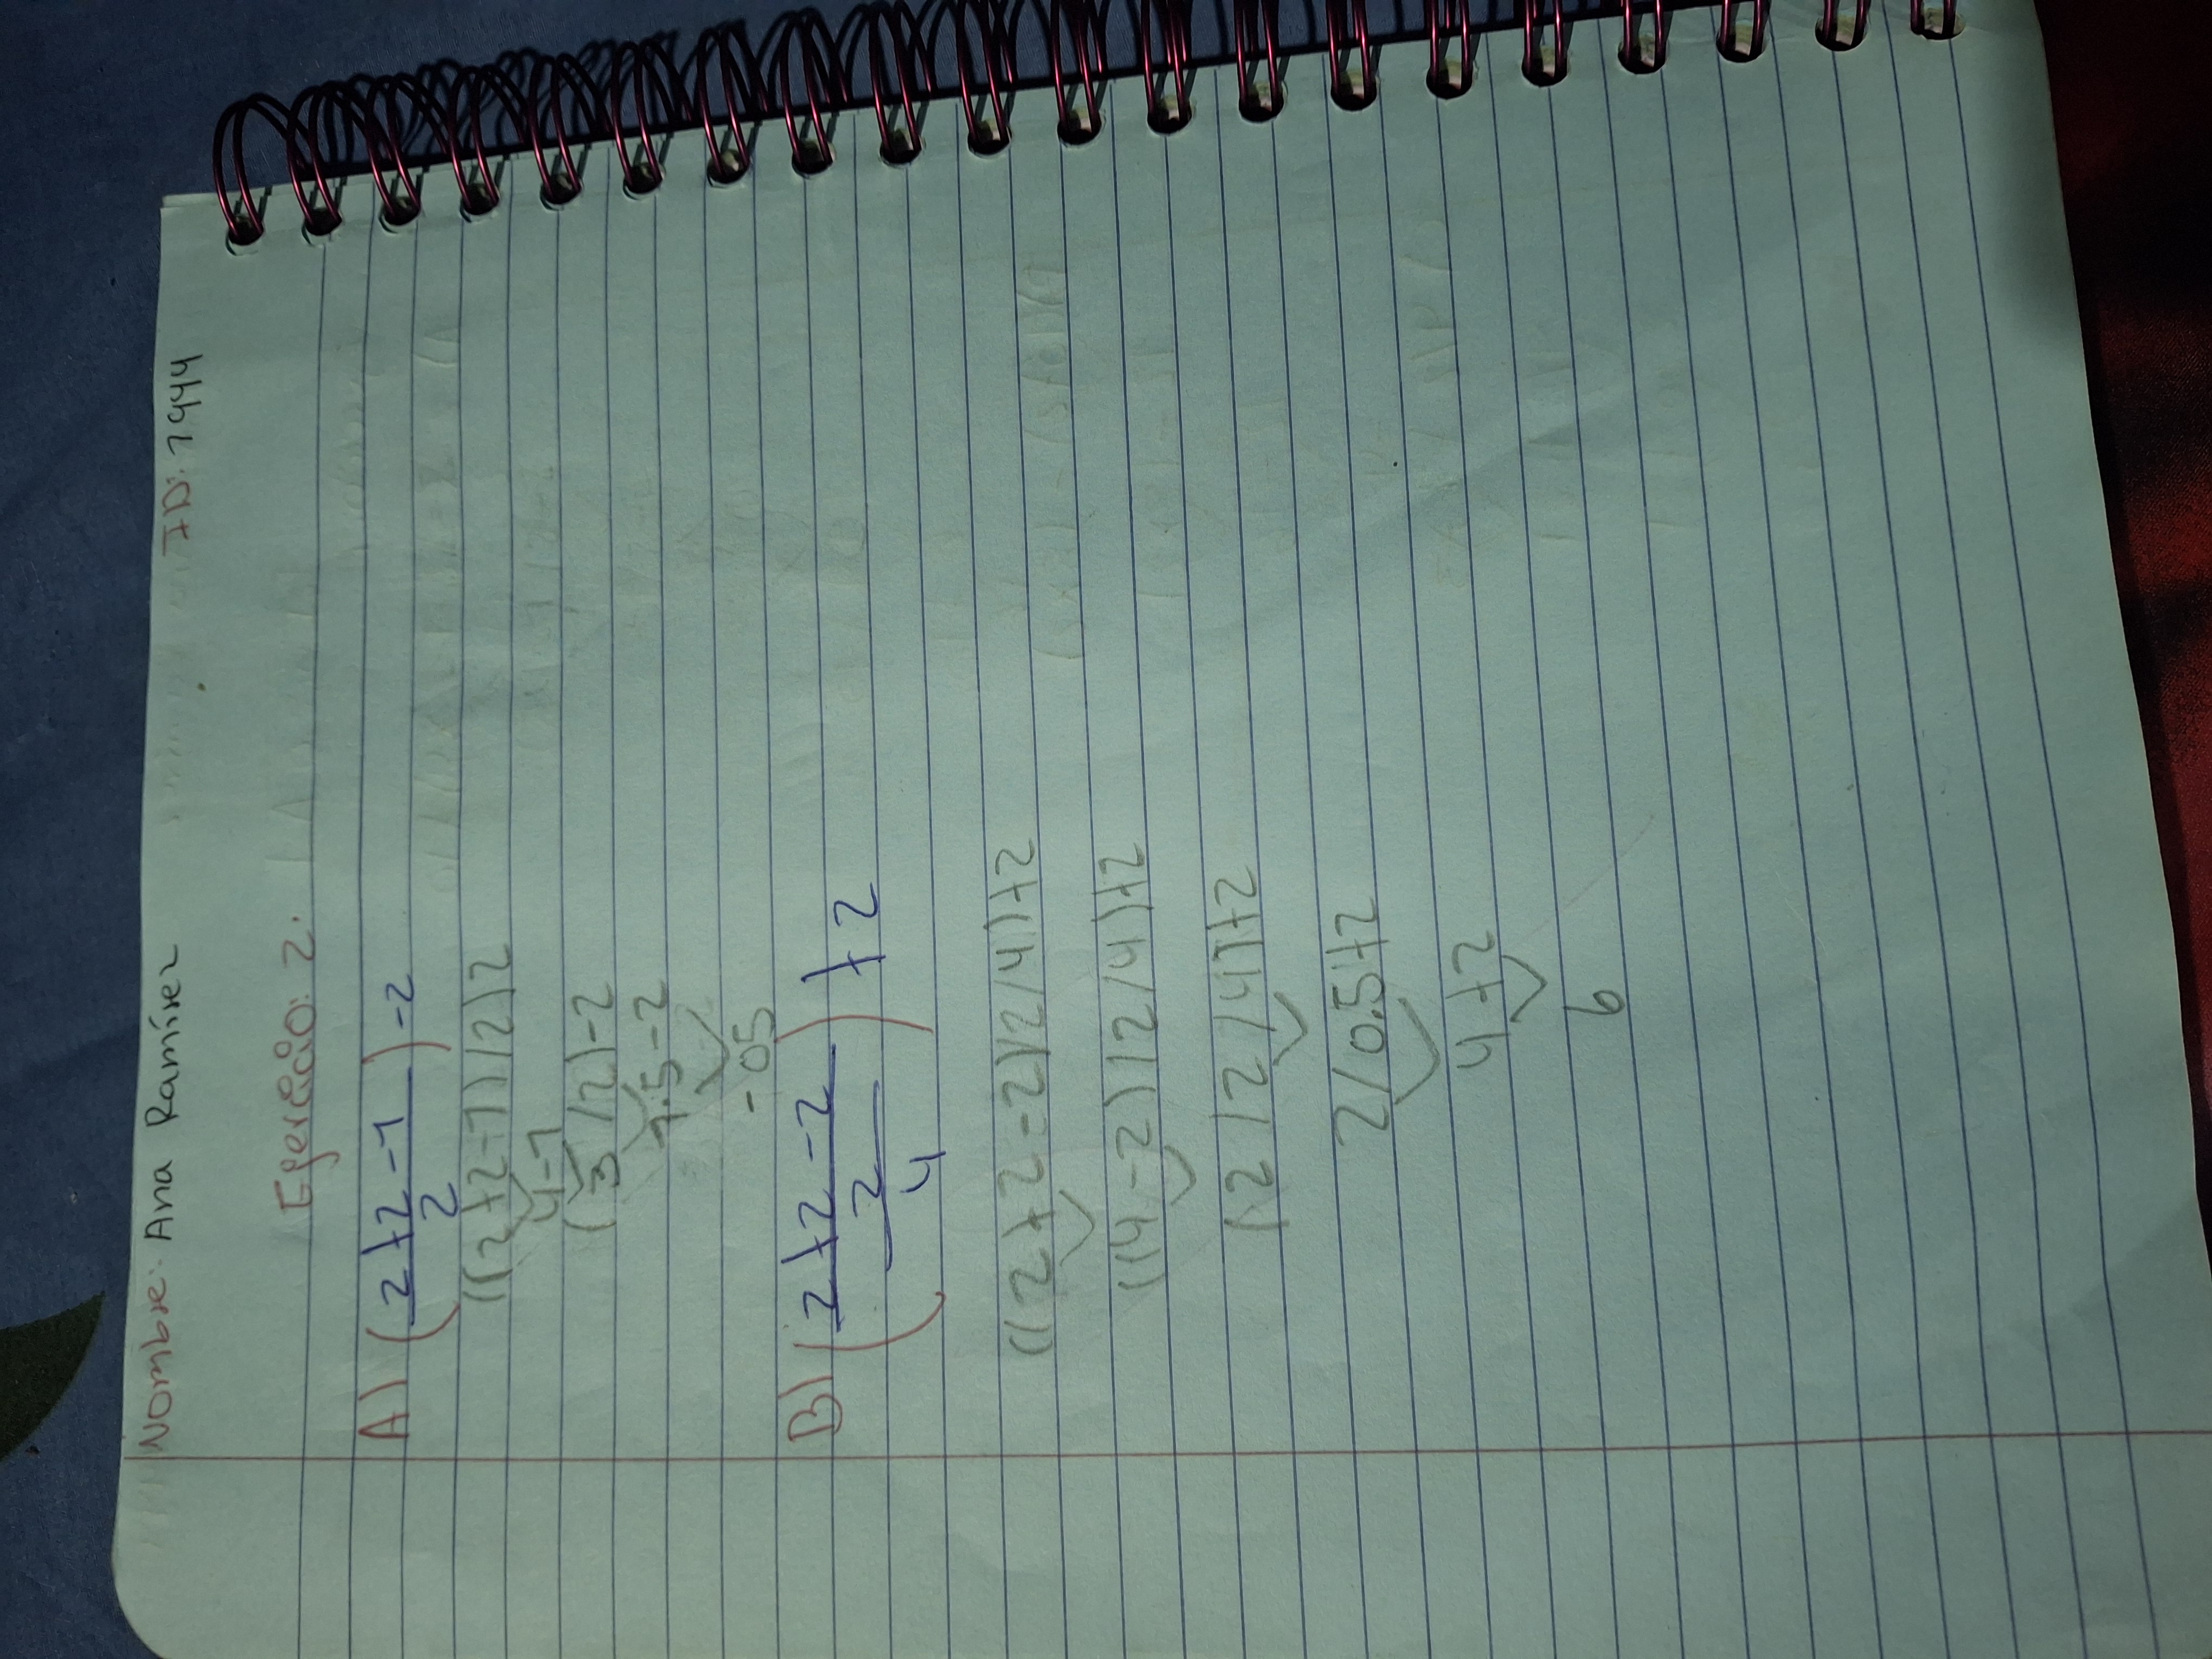 Nombre: Ana Ramírez ID: 7944
Ejercicio: 2.
A) (2+2-1
2) -2
((2+2-1)/2)2
4-1
(3/2)-2
1.5-2
-05
B) (2+2-2
2
4) +2
((2+2-2)/2/4)+2
((4-2)/2/4)+2
(2/2/4)+2
2/0.5+2
4+2
6